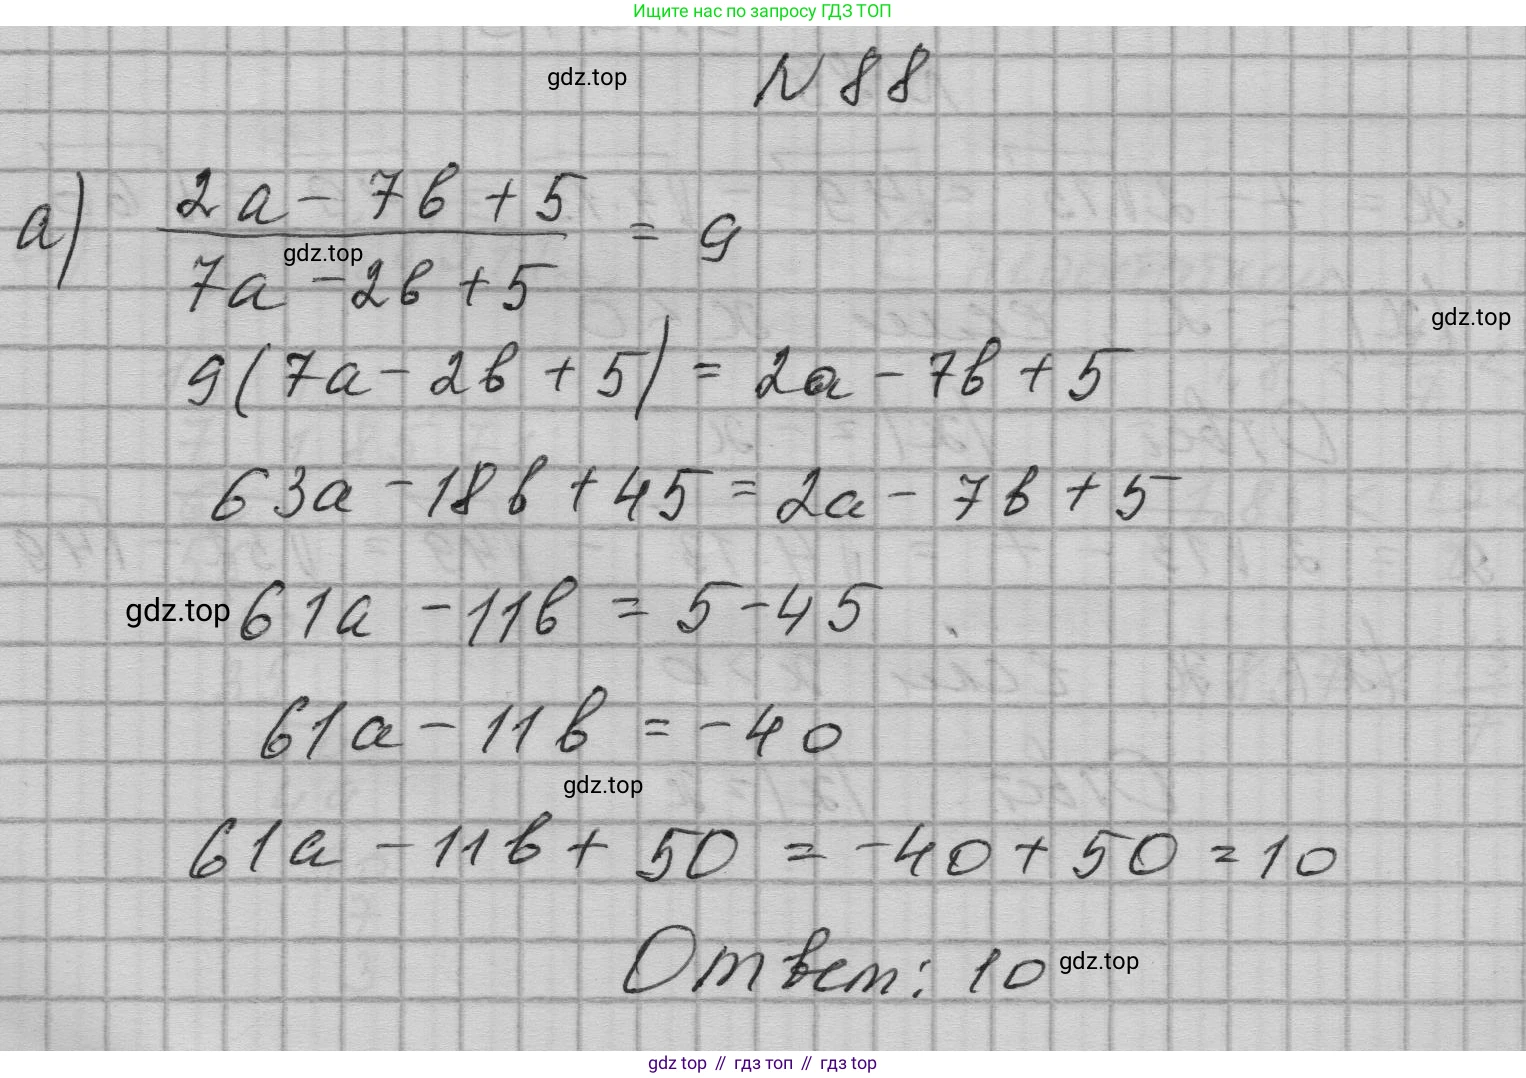 Ищите нас по запросу ГДЗ ТОП
gdz.top
N 88
а) (2a - 7b + 5) / (7a - 2b + 5) = 9
gdz.top
gdz.top
9(7a - 2b + 5) = 2a - 7b + 5
63a - 18b + 45 = 2a - 7b + 5
gdz.top
61a - 11b = 5 - 45
61a - 11b = -40
gdz.top
61a - 11b + 50 = -40 + 50 = 10
Ответ: 10
gdz.top
gdz top // гдз топ // гдз top